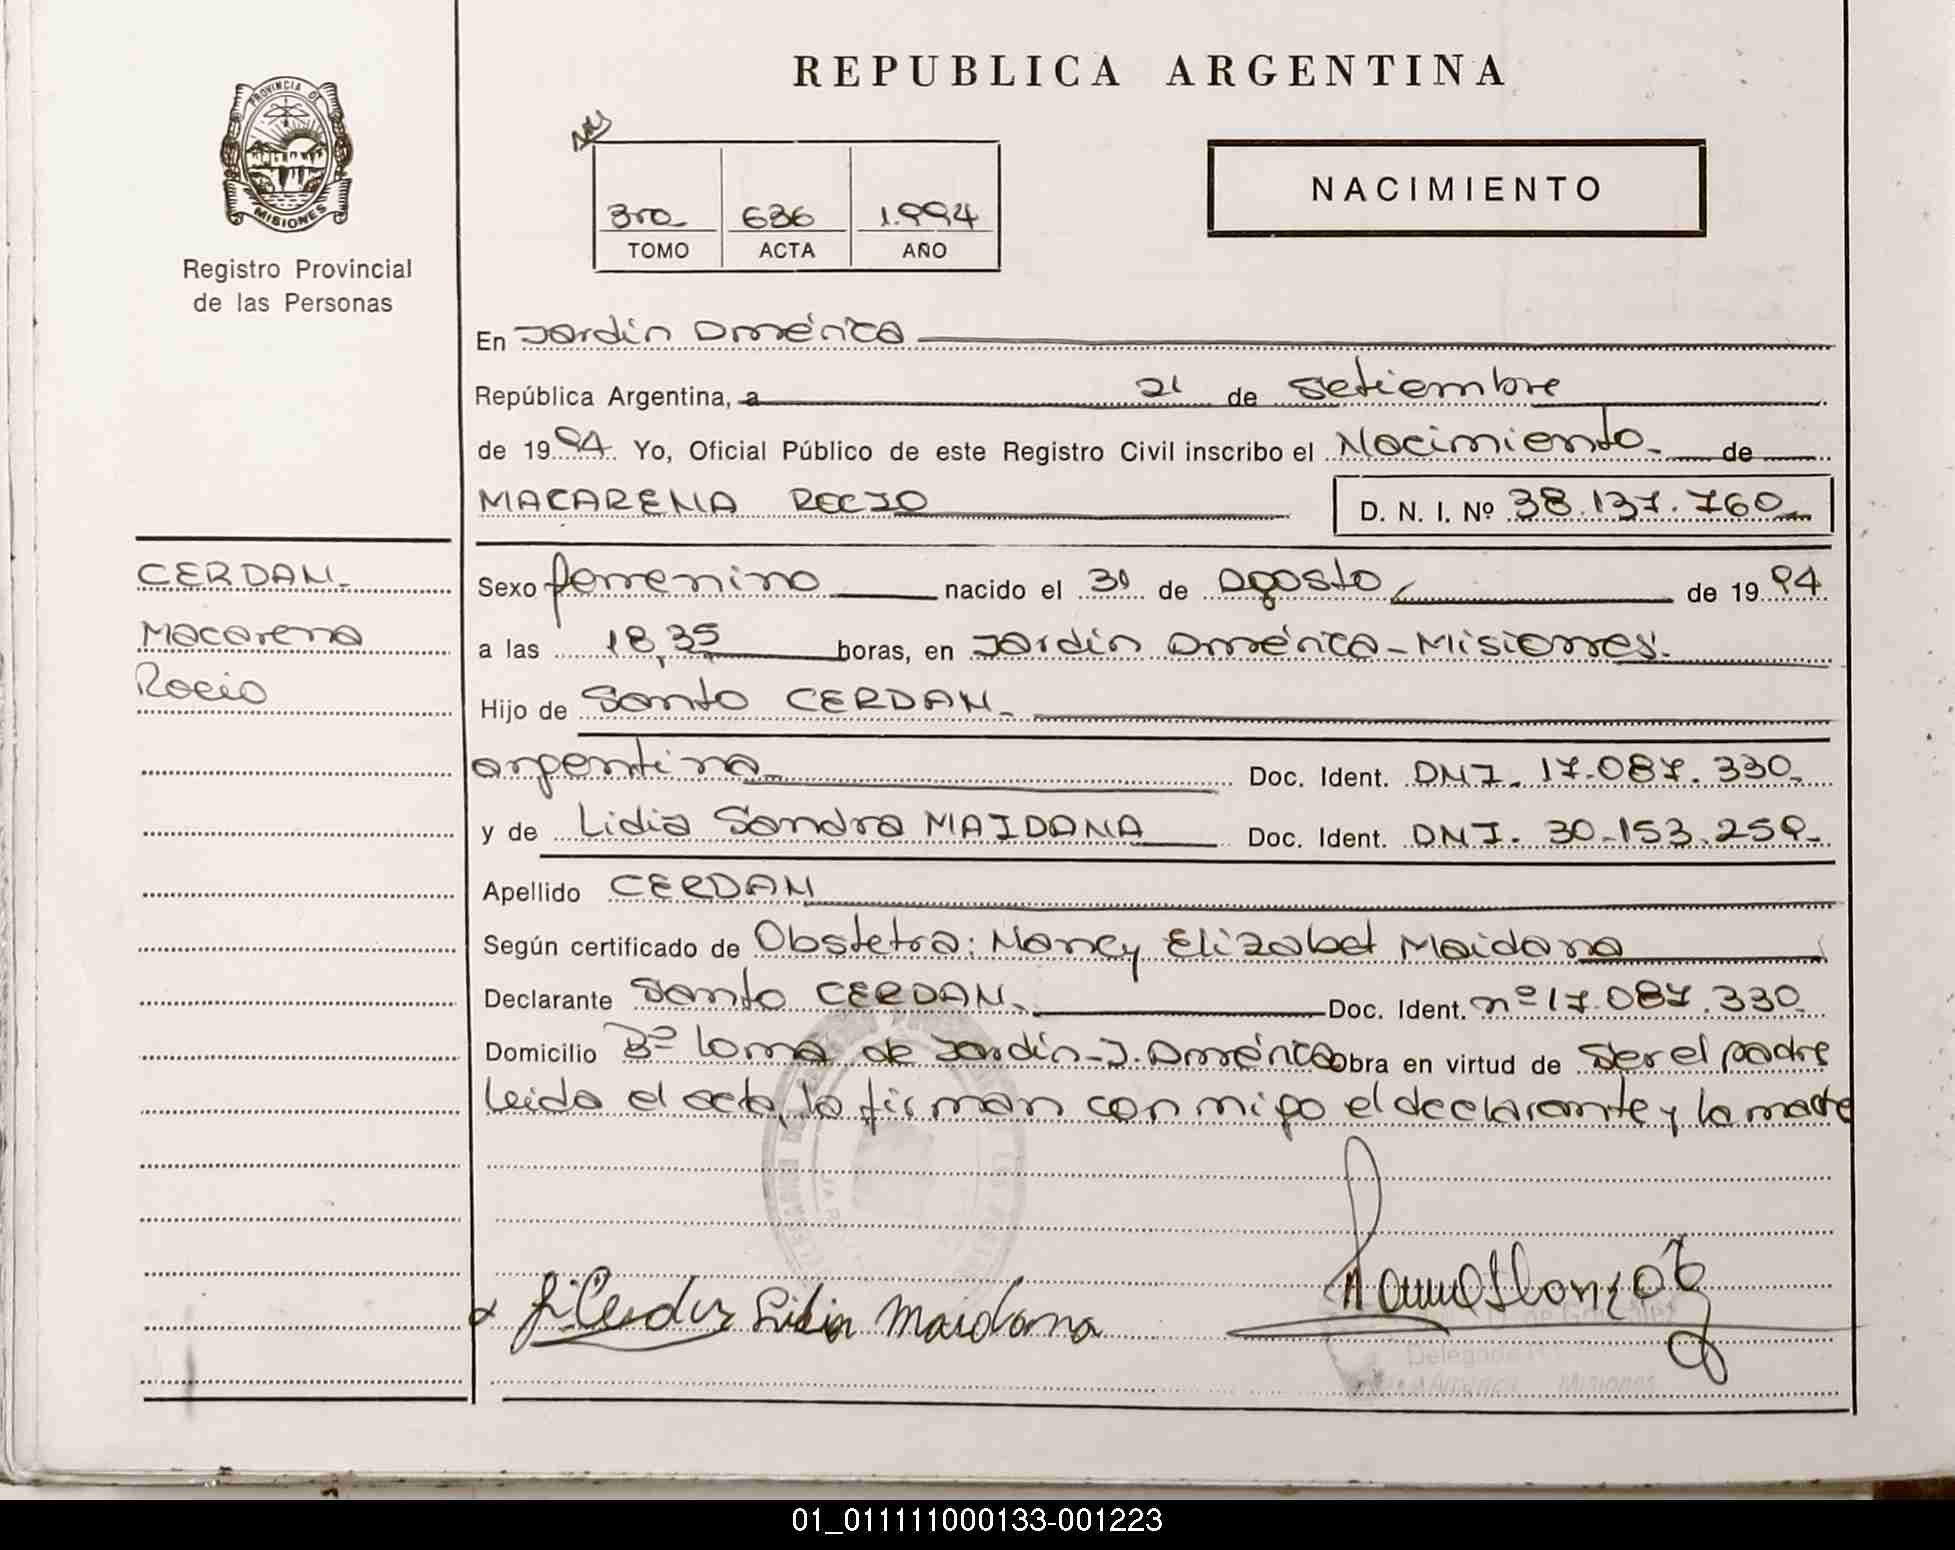 REPUBLICA ARGENTINA
PROVINCIA DE
MISIONES
Registro Provincial
de las Personas
3ro 636 1.994
TOMO ACTA AÑO
NACIMIENTO
En Jardín América
República Argentina, a 21 de setiembre
de 1994 Yo, Oficial Público de este Registro Civil inscribo el Nacimiento- de
MACARENA ROCIO
D. N. I. Nº 38.137.760
CERDAN-
Macarena
Rocio
Sexo femenino nacido el 30 de agosto de 1994
a las 18,35 horas, en Jardín América - Misiones.
Hijo de Santo CERDAN-
argentina- Doc. Ident. DNI. 17.087.330-
y de Lidia Sandra MAIDANA Doc. Ident. DNI. 30-153.259-
Apellido CERDAN
Según certificado de Obstetra: Nancy Elizabet Maidana
Declarante Santo CERDAN- Doc. Ident. nº 17.087.330
Domicilio Bº loma de Jardín - J. América obra en virtud de ser el padre
leida el acta, la firman conmigo el declarante y la madre
Lidia Maidana
Delegado
Misiones
01_011111000133-001223